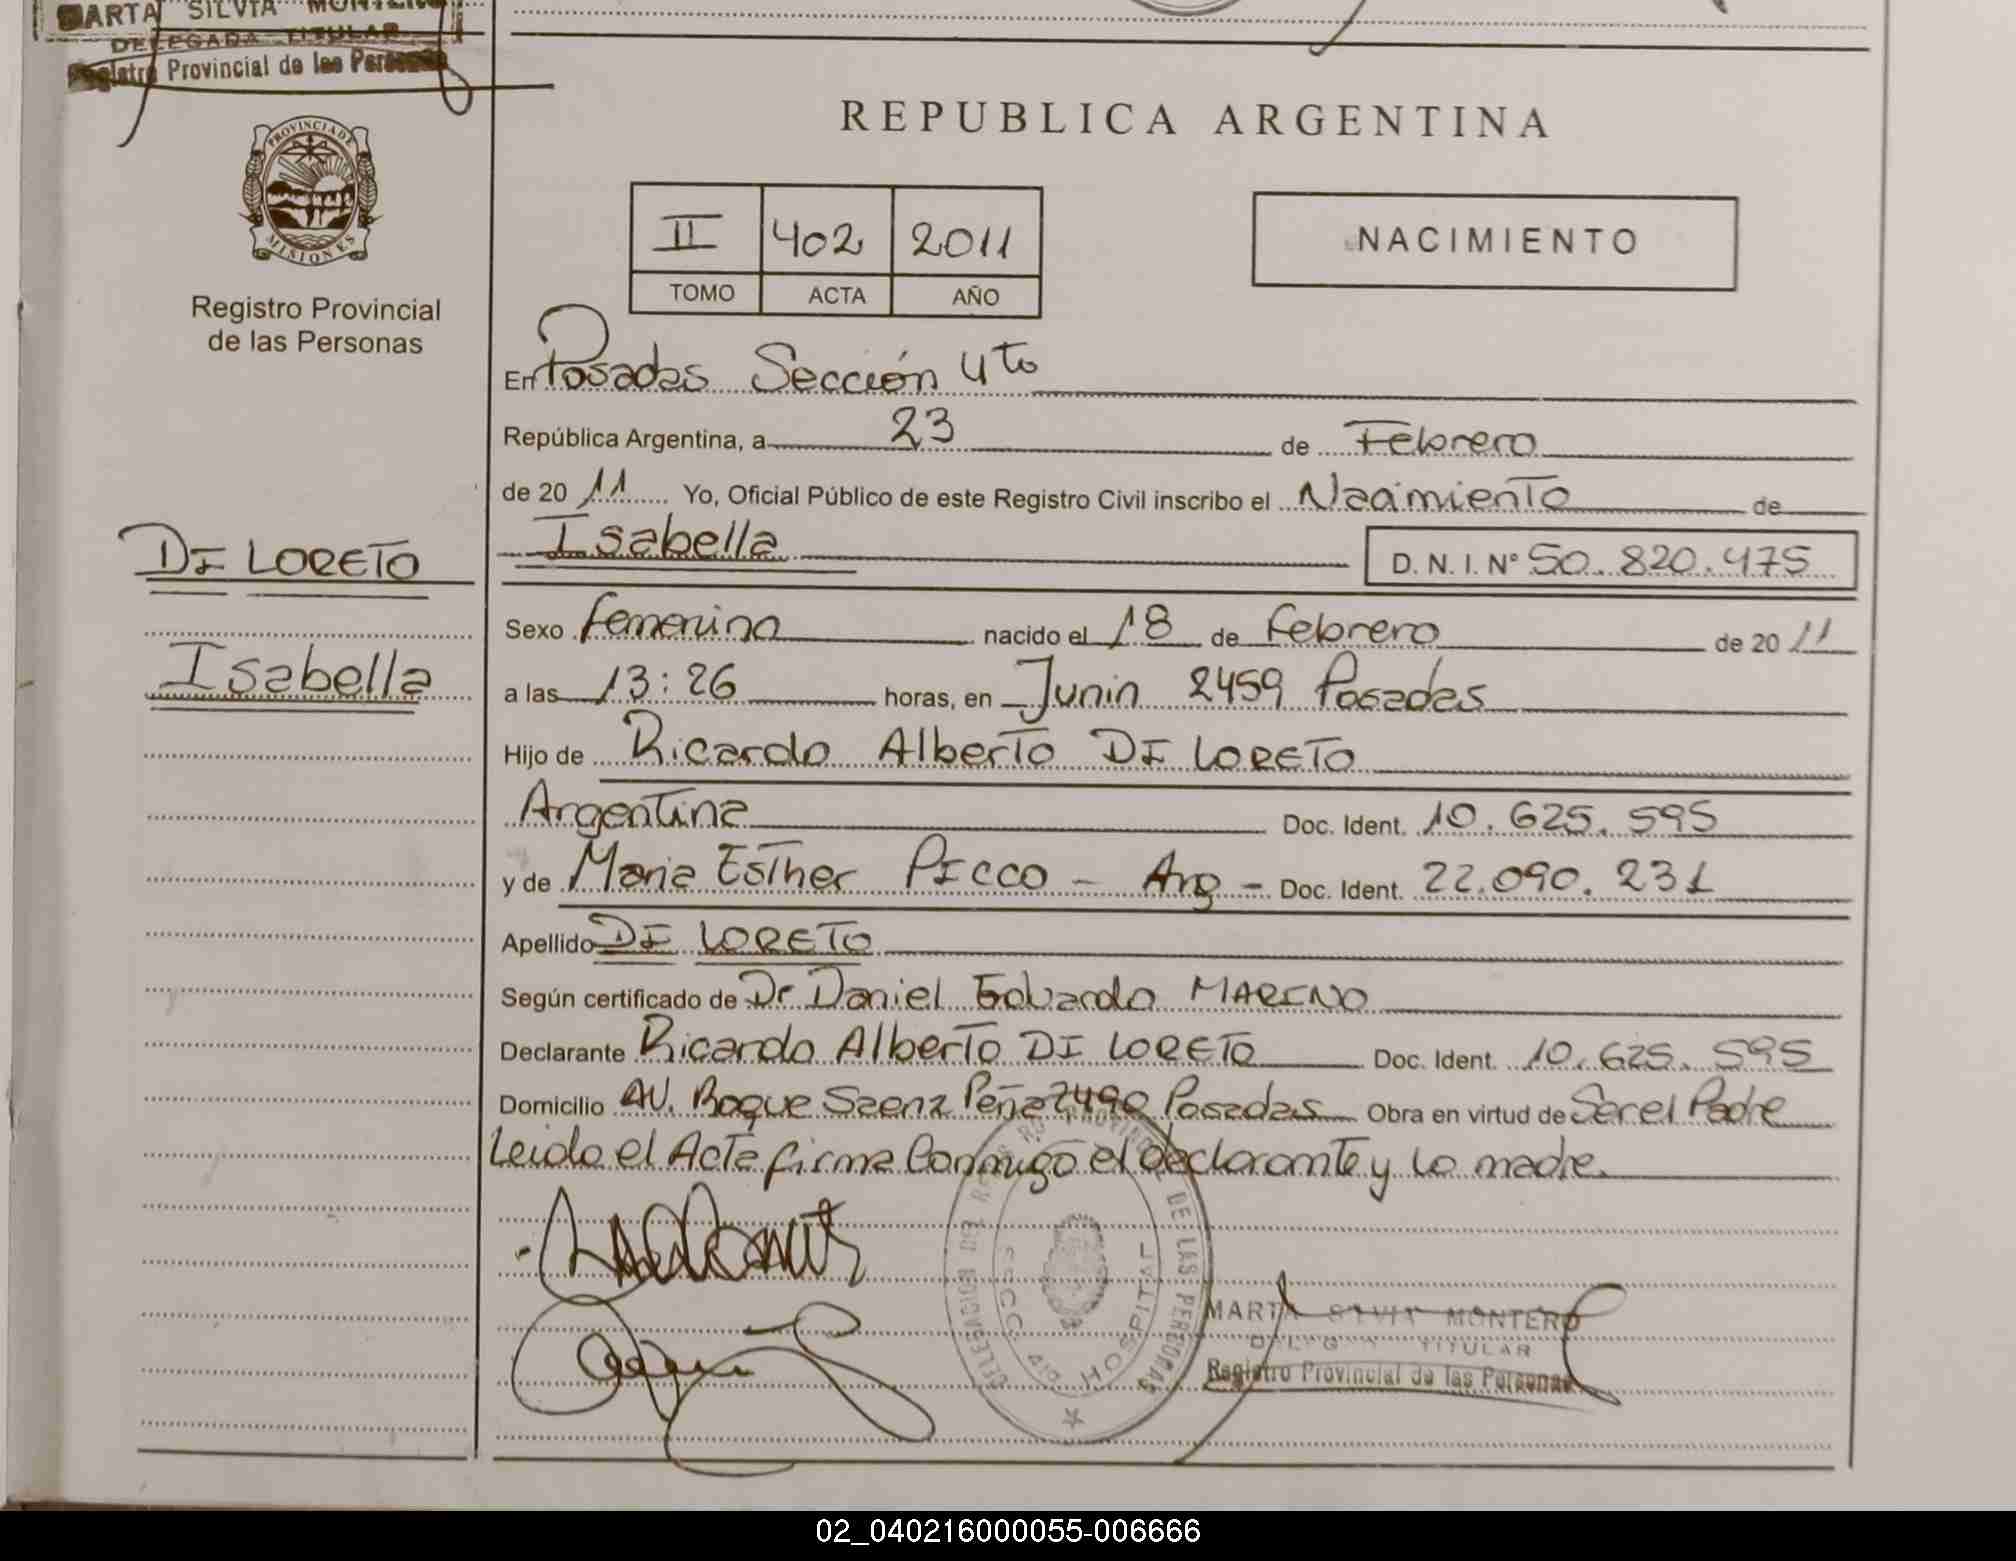 MARTA SILVIA MONTERO
DELEGADA TITULAR
Registro Provincial de las Personas
PROVINCIA DE
MISIONES
Registro Provincial
de las Personas
REPUBLICA ARGENTINA
II 402 2011
TOMO ACTA AÑO
NACIMIENTO
En Posadas Sección 4to
República Argentina, a 23 de Febrero
de 20 11 Yo, Oficial Público de este Registro Civil inscribo el Nacimiento de
Isabella D. N. I. Nº 50.820.475
DI LORETO
Isabella
Sexo femenino nacido el 18 de Febrero de 20 11
a las 13:26 horas, en Junin 2459 Posadas
Hijo de Ricardo Alberto DI LORETO
Argentina Doc. Ident. 10.625.595
y de Maria Esther PICCO - Arg - Doc. Ident. 22.090.231
Apellido DI LORETO
Según certificado de Dr Daniel Eduardo MARINO
Declarante Ricardo Alberto DI LORETO Doc. Ident. 10.625.595
Domicilio AV. Roque Saenz Peña 2490 Posadas Obra en virtud de Ser el Padre
Leido el Acta firma Conmigo el declarante y la madre.
DELEGACION DEL REGISTRO PROVINCIAL DE LAS PERSONAS
SECC. 4ta HOSPITAL
MARTA SILVIA MONTERO
DELEGADA TITULAR
Registro Provincial de las Personas
02_040216000055-006666